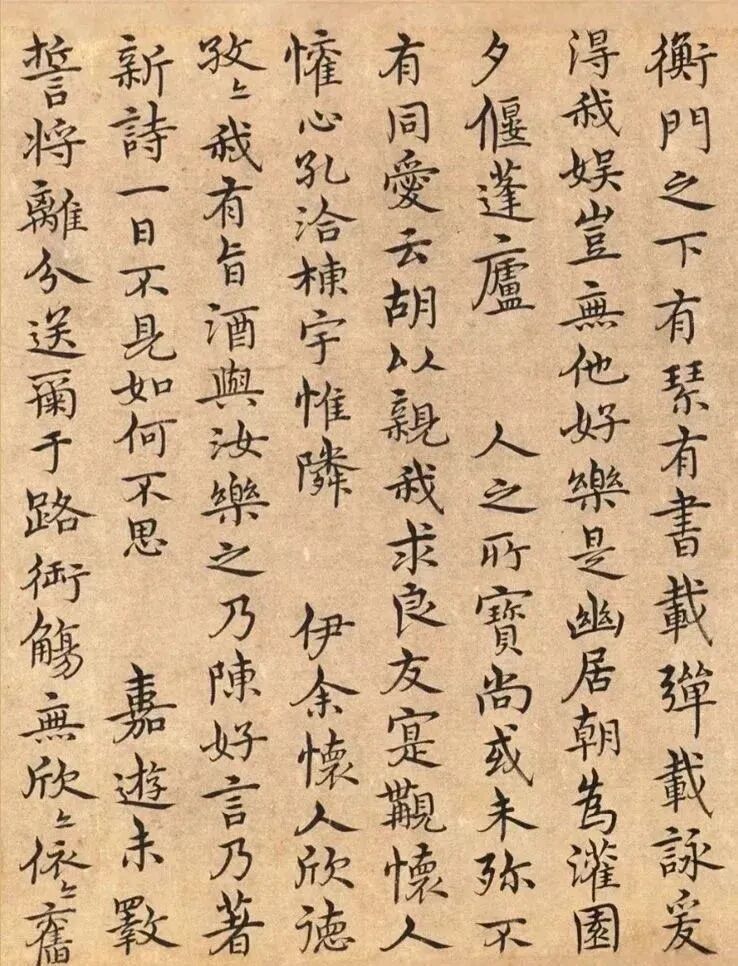 衡門之下有琴有書載彈載詠爰
得我娱豈無他好樂是幽居朝為灌園
夕偃蓬廬 人之所寶尚或未珎不
有同愛云胡以親我求良友寔覯懷人
懽心孔洽棟宇惟隣 伊余懷人欣德
孜〻我有旨酒與汝樂之乃陳好言乃著
新詩一日不見如何不思 嘉遊未斁
誓将離分送爾于路銜觴無欣〻依〻舊